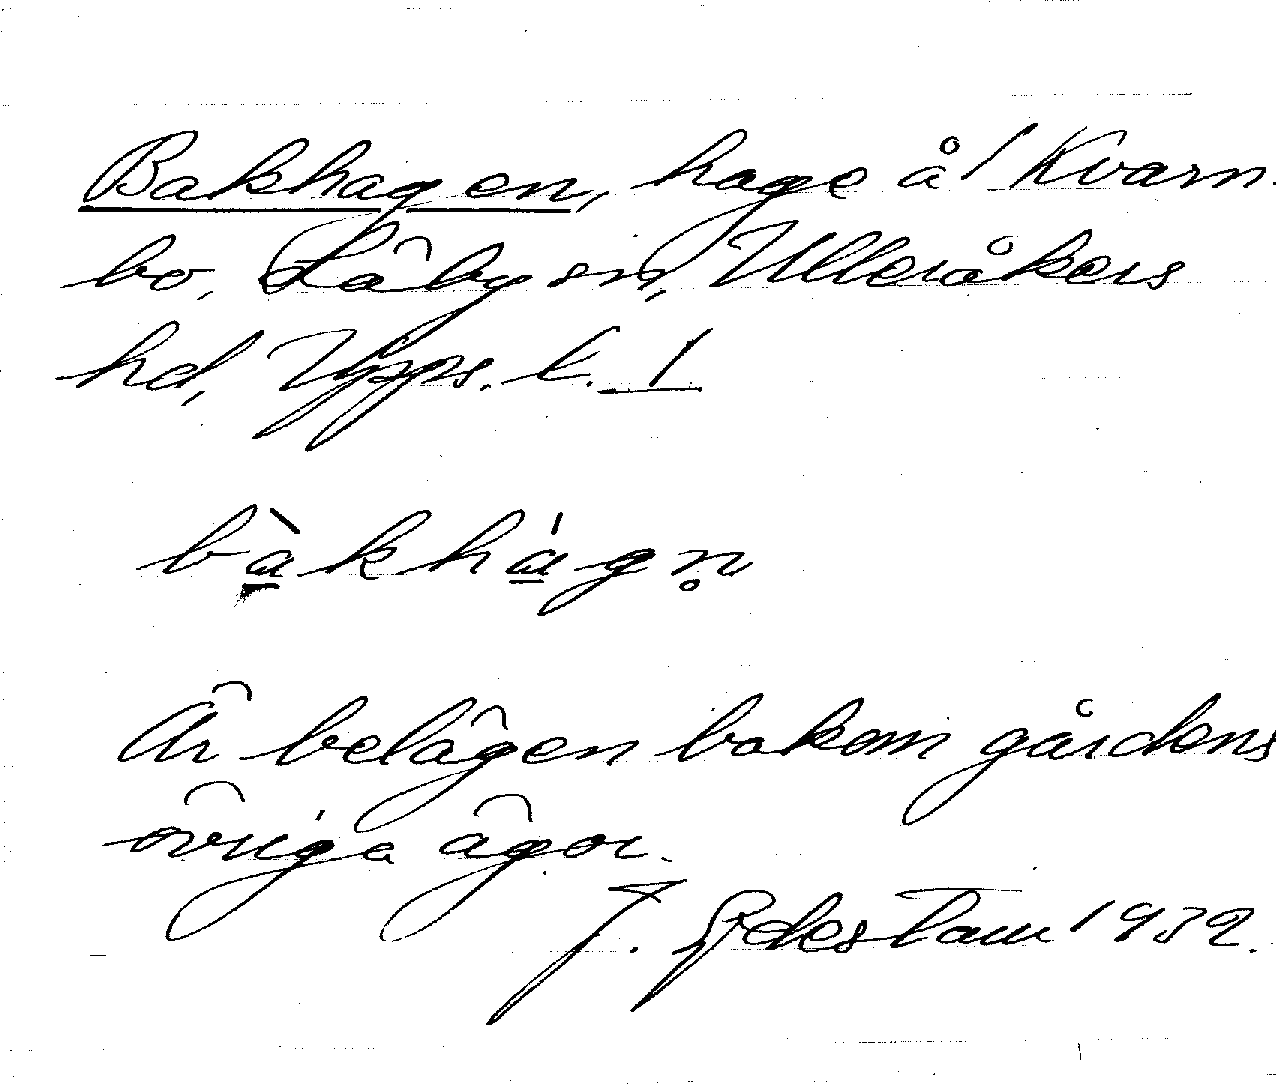 Bakhagen, hage å 1 Kvarn-
bo, Läby sn, Ulleråkers
hd, Upps. l. 1
bàkhágn̥
Är belägen bakom gårdens
övriga ägor.
J. Edestam 1932.